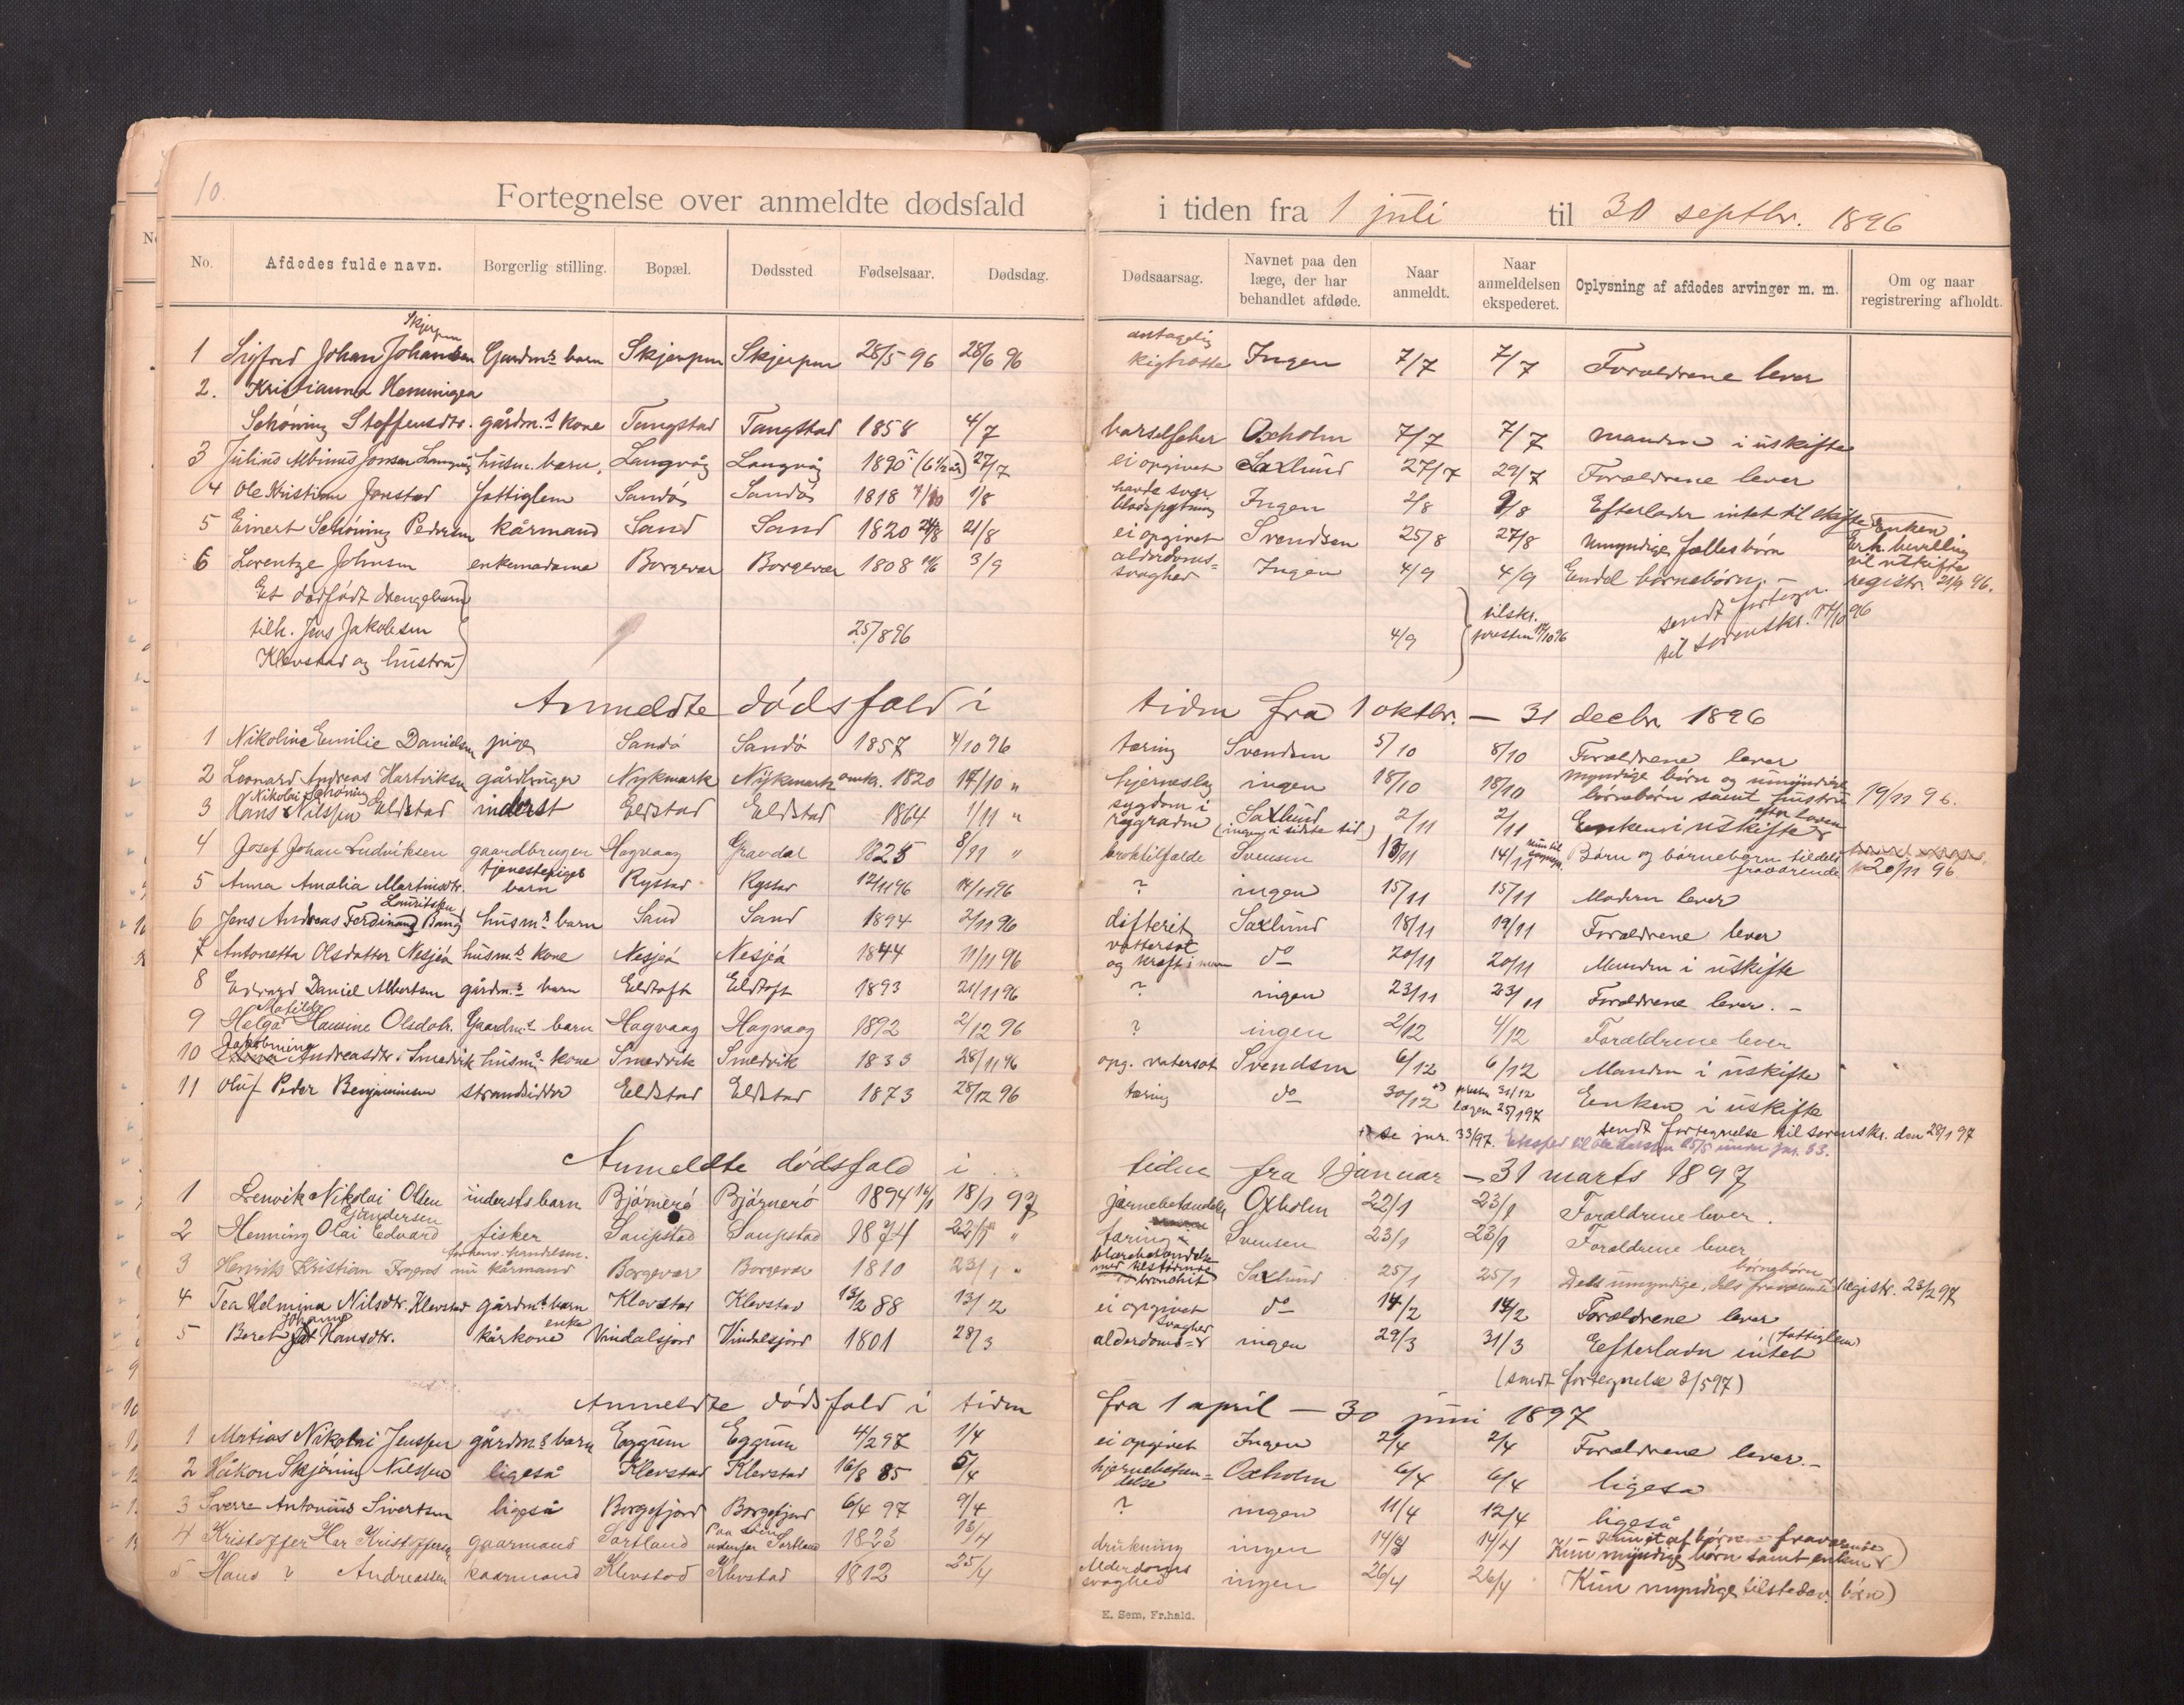 10.
Fortegnelse over anmeldte dødsfald i tiden fra 1 juli til 30 septbr. 1896
No. Afdødes fulde navn. Borgerlig stilling. Bopæl. Dødssted Fødselsaar. Dødsdag. Dødsaarsag. Navnet paa den læge, der har behandlet afdøde. Naar anmeldt. Naar anmeldelsen ekspederet. Oplysning af afdødes arvinger m. m. Om og naar registrering afholdt.
Skjerpen antagelig
1 Sigfred Johan Johansen Gardm.s barn Skjerpen Skjerpen 28/5 96 28/6 96 kighoste Ingen 7/7 7/7 Forældrene lever
2. Kristianna Hemmingea
Schøning Steffensdtr. gårdm.s kone Tangstad Tangstad 1858 4/7 barselfeber Oxholm 7/7 7/7 manden i uskifte
3 Julius Albinus Jonsen Langvåg husm. barn. Langvåg Langvåg 1890 (6 1/2 år) 27/7 ei opgivet Saxlund 27/7 29/7 Forældrene lever
4 Ole Kristian Jonstad fattiglem Sandø Sandø 1818 1/8 havde svær blodspytning Ingen 2/8 8/8 Efterlader intet til skifte
5 Einert Schøning Pedersen kårmand Sand Sand 1820 24/8 21/8 ei opgivet Svendsen 25/8 27/8 Umyndige fællesbørn Enken erh. bevilling til uskifte
6 Lorentze Johnsen enkemadame Borgevær Borgevær 1808 3/9 alderdoms= svaghed Ingen 4/9 4/9 Endel børnebørn. — registr. 21/9 96.
Et dødfødt drengebarn
tilh. Jens Jakobsen 25/8 96 4/9 tilskr. presten 17/10 96 sendt fortegn. til sorenskr. 17/10 96
Klevstad og hustru
Anmeldte dødsfald i tiden fra 1 oktbr. — 31 decbr. 1896
1 Nikoline Emilie Danielsen pige Sandø Sandø 1857 4/10 96 tæring Svendsen 5/10 8/10 Forældrene lever
2 Leonard Andreas Hartviksen gårdbruger Nykmark Nykmark omkr. 1820 14/10 " hjerneslag ingen 18/10 18/10 myndige børn og umyndige børnebørn samt hustru 19/11 96.
Nikolai Schøning
3 Hans Nilssen Eldstad inderst Eldstad Eldstad 1864 1/11 " sygdom i rygraden Saxlund (ingen i sidste tid) 2/11 2/11 Enken i uskifte efter loven
4 Josef Johan Ludviksen gaardbruger Hagvaag Gravdal 1825 8/11 " broktilfælde Svensen 13/11 14/11 Børn og børnebørn tildels fraværende 20/11 96.
5 Anna Amalia Martinsdtr. tjenestepiges barn Rystad Rystad 12/11 96 14/11 96 ? ingen 15/11 15/11 Moderen lever
Lauritsen
6 Jens Andreas Ferdinand Bang husm.s barn Sand Sand 1894 2/11 96 difterit Saxlund 18/11 19/11 Forældrene lever
7 Antonetta Olsdatter Nesjeå husm.s kone Nesjeå Nesjeå 1844 11/11 96 vattersot og kræft i do 20/11 20/11 Manden i uskifte
8 Edvard Daniel Albertsen gårdm.s barn Eldtoft Eldtoft 1893 21/11 96 ? ingen 23/11 23/11 Forældrene lever. —
Matilde
9 Helga Hansine Olsdotr. Gaardm.s barn Hagvaag Hagvaag 1892 2/12 96 ? ingen 2/12 4/12 Forældrene lever
Jakobmine
10 Andreasdtr. Smedvik husm.s kone Smedvik Smedvik 1833 28/11 96 opg. vatersot Svendsen 6/12 6/12 Manden i uskifte
11 Oluf Peder Benjaminsen strandsidder Eldstad Eldstad 1873 28/12 96 tæring do 30/12 presten 31/12 lægen 25/1 97 Enken i uskifte
sendt fortegnelse til sorenskr. den 28/1 97
se jnr. 33/97.
Anmeldte dødsfald i tiden fra 1 januar — 31 marts 1897
1 Lenvik Nikolai Olsen inderstsbarn Bjørnerø Bjørnerø 1894 18/1 97 Oxholm 22/1 23/1 Forældrene lever.
2 Henning Olai Edvard fisker Saupstad Saupstad 1874 22/1 " tæring Svensen 23/1 23/1 Forældrene lever
3 Henrik Kristian nu kårmand Borgevær Borgevær 1810 23/1 " blærebetændelse med tilstødende bronchit Saxlund 25/1 25/1 Dels umyndige, dels fraværende børnebørn registr. 23/2 97
4 Tea Helmina Nilsdtr. Klevstad gårdm.s barn Klevstad Klevstad 13/2 88 13/2 ei opgivet do 14/2 14/2 Forældrene lever
Johanne enke
5 Beret Hansdtr. kårkone Vindalsjord Vindalsjord 1801 28/3 alderdoms= svaghed ingen 29/3 31/3 Efterlader intet (fattiglem)
(sendt fortegnelse 3/5 97)
Anmeldte dødsfald i tiden fra 1 april — 30 juni 1897
1 Matias Nikolai Jenssen gårdm.s barn Eggum Eggum 4/2 97 1/4 ei opgivet Ingen 2/4 2/4 Forældrene lever. —
2 Håkon Skjøning Nilssen ligeså Klevstad Klevstad 16/8 85 5/4 hjernebetæn= delse Oxholm 6/4 6/4 ligeså
3 Sverre Antonius Sivertsen ligeså Borgefjord Borgefjord 6/4 97 9/4 ? ingen 11/4 12/4 ligeså
4 Kristoffer Har Kristoffersen gaarmand Sortland Paa søen udenfor Sortland 1823 13/4 drukning ingen 14/4 14/4 Kun myndige børn samt enken
5 Hans ? Andreassen kaarmand Klevstad Klevstad 1812 25/4 Alderdoms svaghed ingen 26/4 26/4 Kun myndige tilstedev. børn)
E. Sem, Fr.hald.